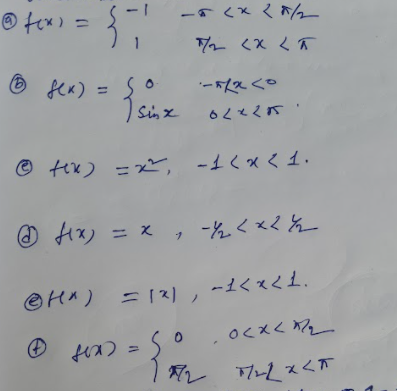 ⓐ f(x) = { -1   -π < x < π/2
1   π/2 < x < π
ⓑ f(x) = { 0   -π < x < 0
sin x   0 < x < π.
ⓒ f(x) = x², -1 < x < 1.
ⓓ f(x) = x, -1/2 < x < 1/2
ⓔ f(x) = |x|, -1 < x < 1.
ⓕ f(x) = { 0   0 < x < π/2
π/2   π/2 < x < π